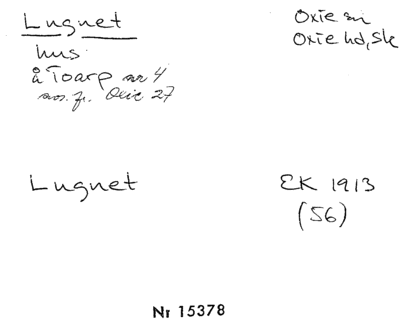 Lugnet
Oxie sn
Oxie hd, Sk
hus
å Toarp nr 4
avs. fr. Oxie 27
Lugnet
EK 1913
(56)
Nr 15378